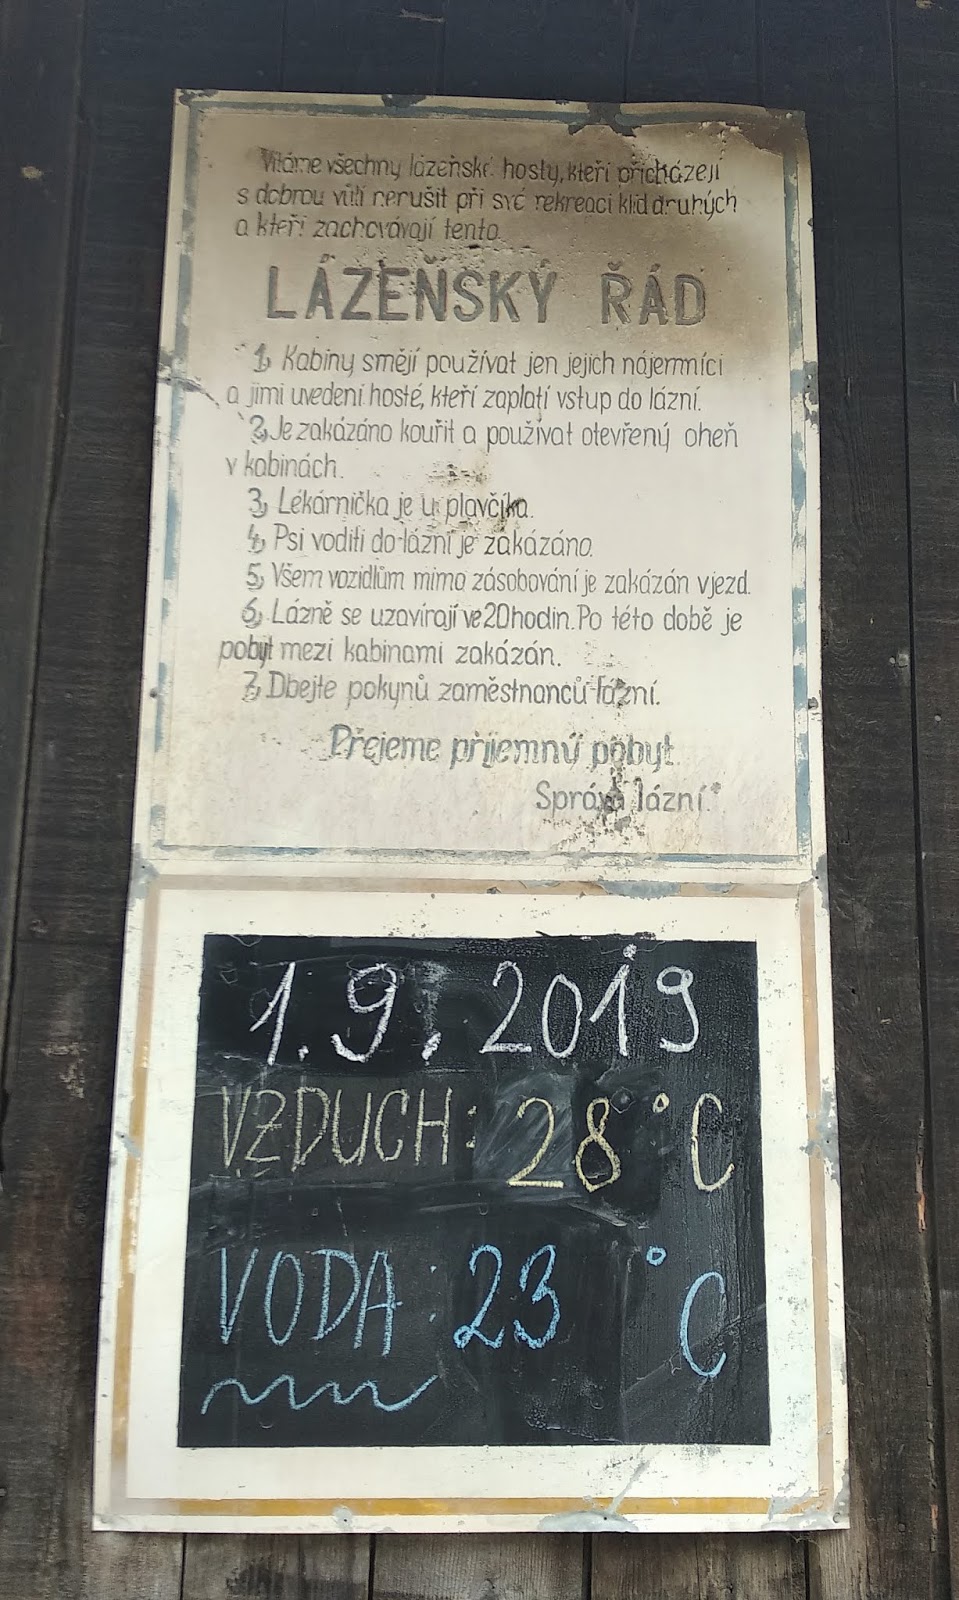 Vítáme všechny lázeňské hosty, kteří přicházejí
s dobrou vůlí nerušit při své rekreaci klid druhých
a kteří zachovávají tento
LÁZEŇSKÝ ŘÁD
1, Kabiny smějí používat jen jejich nájemníci
a jimi uvedení hosté, kteří zaplatí vstup do lázní.
2, Je zakázáno kouřit a používat otevřený oheň
v kabinách.
3, Lékárnička je u plavčíka.
4, Psi voditi do lázní je zakázáno.
5, Všem vozidlům mimo zásobování je zakázán vjezd.
6, Lázně se uzavírají ve 20 hodin. Po této době je
pobyt mezi kabinami zakázán.
7, Dbejte pokynů zaměstnanců lázní.
Přejeme příjemný pobyt
Správa lázní.
1.9.2019
VZDUCH: 28 °C
VODA: 23 °C